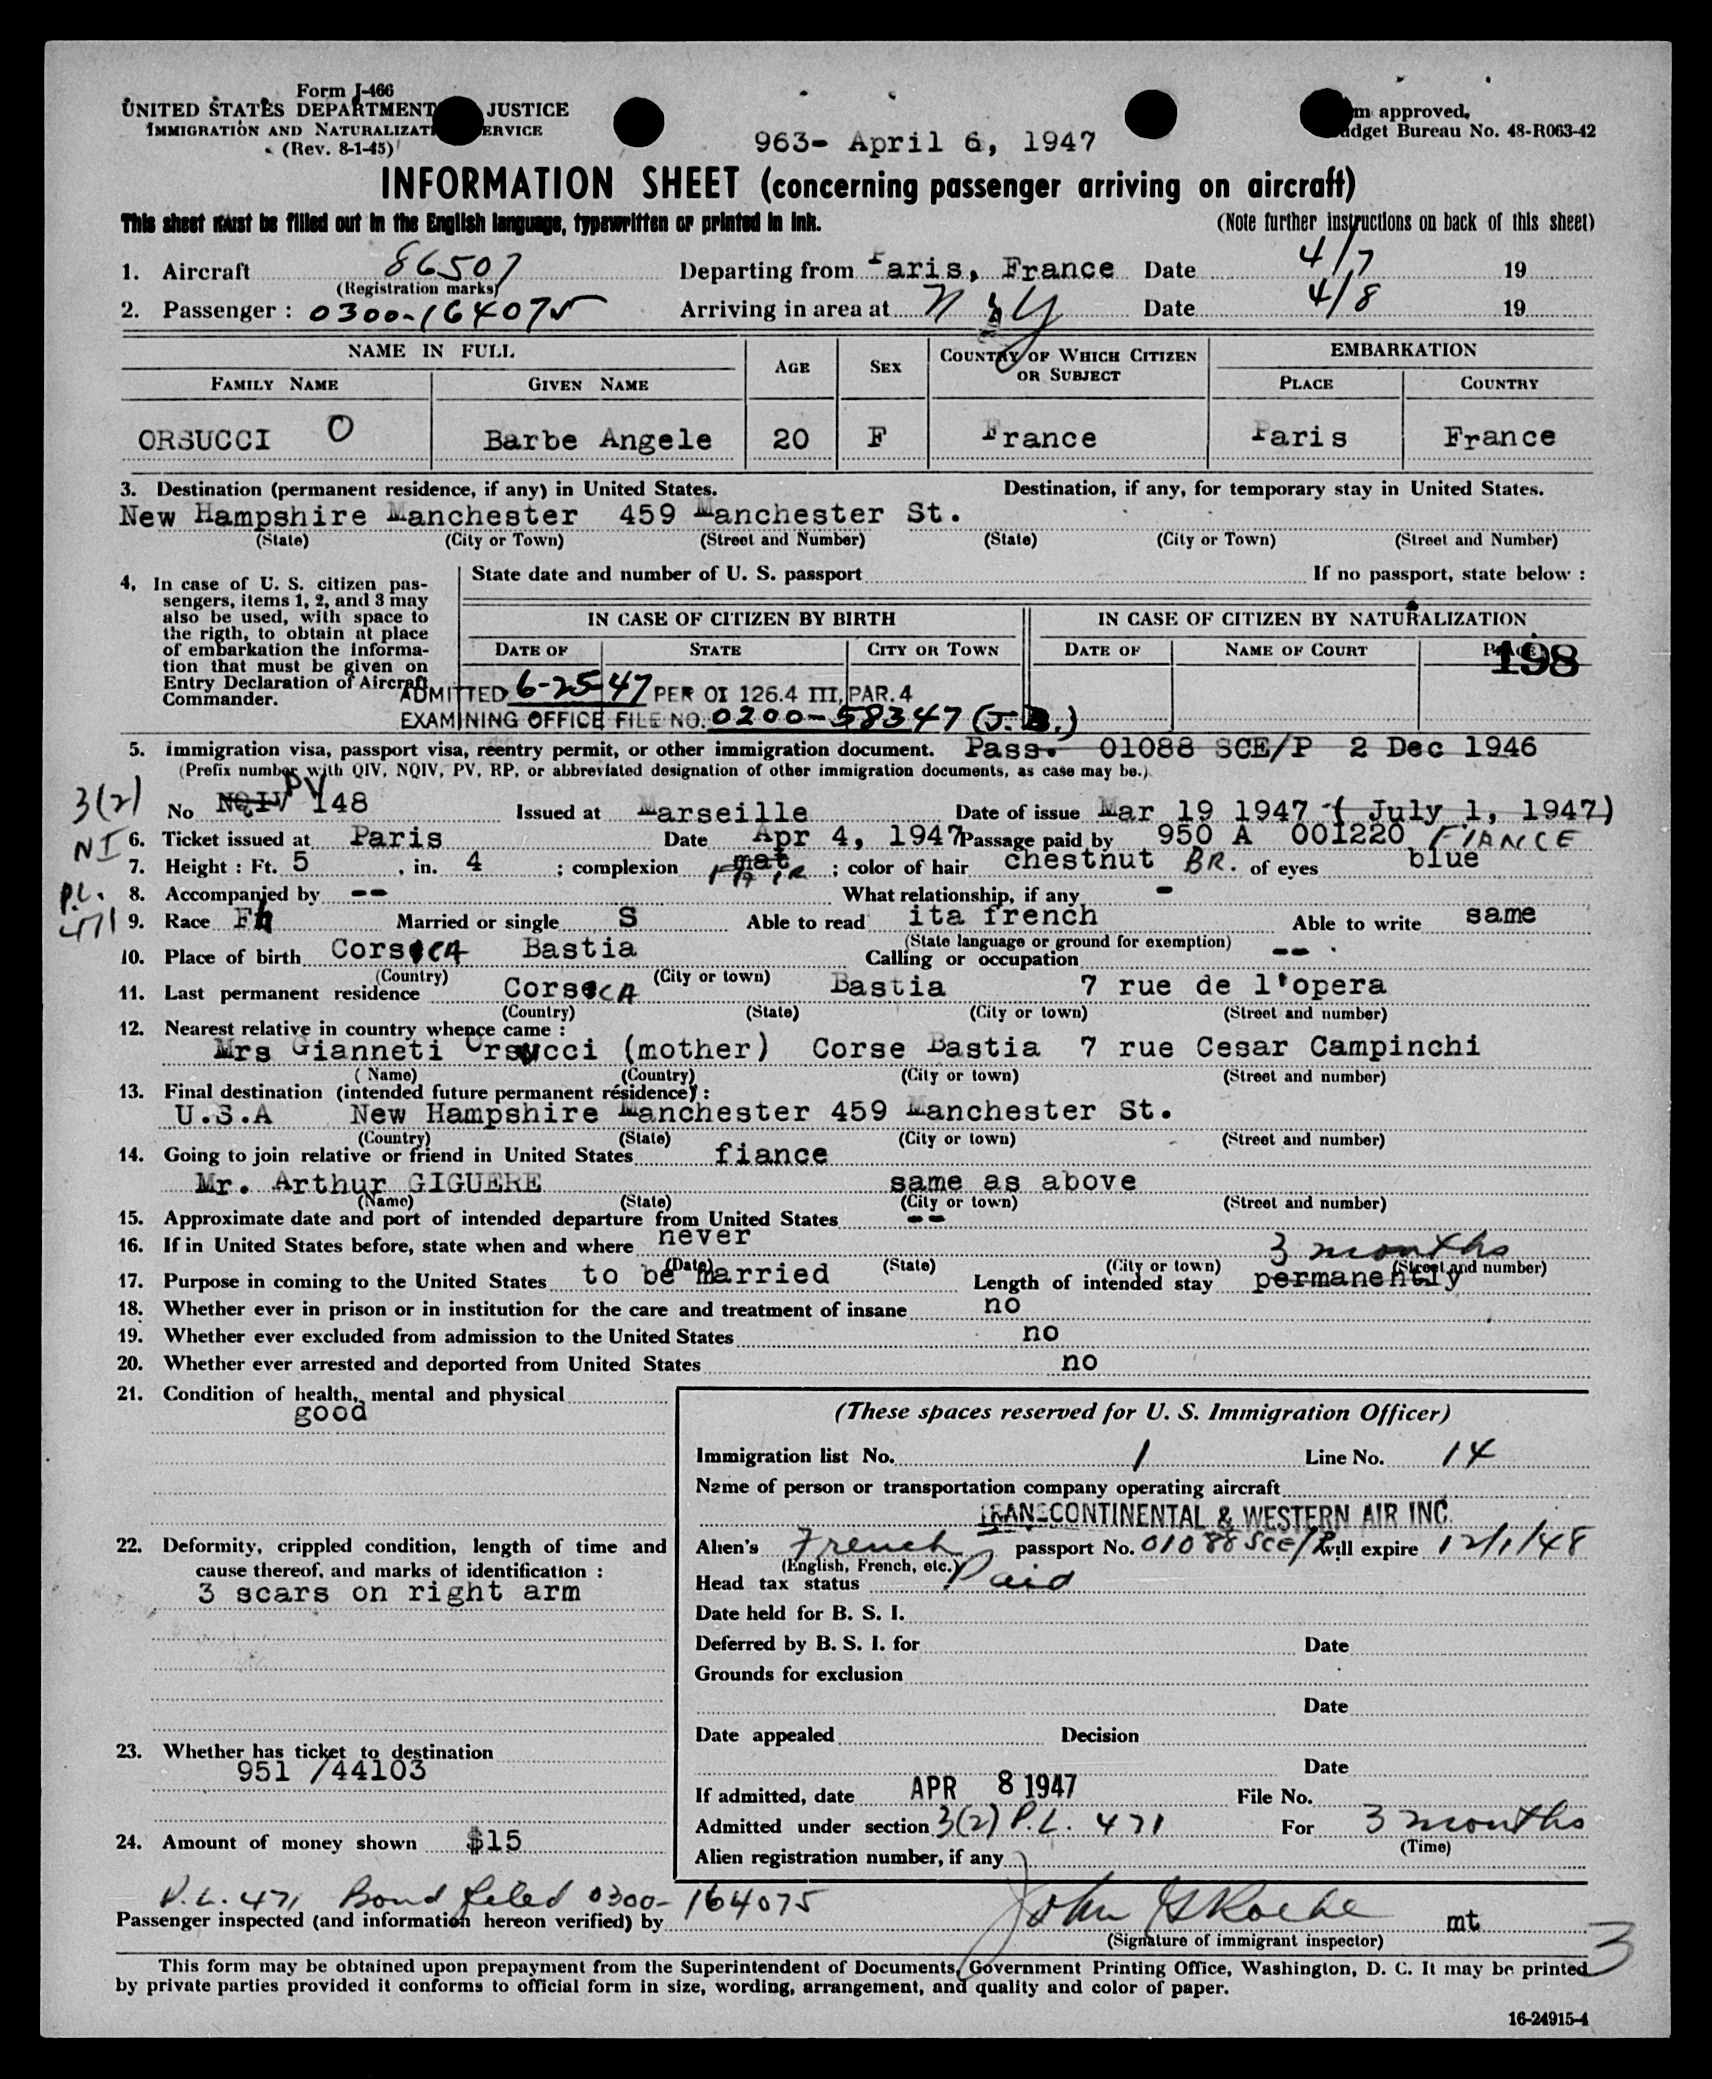 Form I-466
UNITED STATES DEPARTMENT JUSTICE
IMMIGRATION AND NATURALIZATI ERVICE
(Rev. 8-1-45)
m approved.
dget Bureau No. 48-R063-42
963- April 6, 1947
INFORMATION SHEET (concerning passenger arriving on aircraft)
This sheet must be filled out in the English language, typewritten or printed in ink. (Note further instructions on back of this sheet)
1. Aircraft 86507 Departing from Paris, France Date 4/7 19
(Registration marks)
2. Passenger : 0300-164075 Arriving in area at N Y Date 4/8 19
NAME IN FULL AGE SEX COUNTRY OF WHICH CITIZEN OR SUBJECT EMBARKATION
FAMILY NAME GIVEN NAME PLACE COUNTRY
ORSUCCI O Barbe Angele 20 F France Paris France
3. Destination (permanent residence, if any) in United States. Destination, if any, for temporary stay in United States.
New Hampshire Manchester 459 Manchester St.
(State) (City or Town) (Street and Number) (State) (City or Town) (Street and Number)
4. In case of U. S. citizen pas-
sengers, items 1, 2, and 3 may
also be used, with space to
the rigth, to obtain at place
of embarkation the informa-
tion that must be given on
Entry Declaration of Aircraft
Commander.
State date and number of U. S. passport If no passport, state below :
IN CASE OF CITIZEN BY BIRTH IN CASE OF CITIZEN BY NATURALIZATION
DATE OF STATE CITY OR TOWN DATE OF NAME OF COURT PLACE
198
ADMITTED 6-25-47 PER OI 126.4 III, PAR.4
EXAMINING OFFICE FILE NO. 0200-58347 (J.B.)
5. Immigration visa, passport visa, reentry permit, or other immigration document. Pass. 01088 SCE/P 2 Dec 1946
(Prefix number with QIV, NQIV, PV, RP, or abbreviated designation of other immigration documents, as case may be.)
3(2) No NQIV PV 148 Issued at Marseille Date of issue Mar 19 1947 ( July 1, 1947)
NI 6. Ticket issued at Paris Date Apr 4, 1947 Passage paid by 950 A 001220 FIANCE
7. Height : Ft. 5 , in. 4 ; complexion mat FAIR ; color of hair chestnut BR. of eyes blue
P.L. 8. Accompanied by -- What relationship, if any -
471 9. Race Fh Married or single S Able to read ita french Able to write same
(State language or ground for exemption)
10. Place of birth CorsICA Bastia Calling or occupation --
(Country) (City or town)
11. Last permanent residence CorsICA Bastia 7 rue de l'opera
(Country) (State) (City or town) (Street and number)
12. Nearest relative in country whence came :
Mrs Gianneti Orsucci (mother) Corse Bastia 7 rue Cesar Campinchi
( Name) (Country) (City or town) (Street and number)
13. Final destination (intended future permanent résidence) :
U.S.A New Hampshire Manchester 459 Manchester St.
(Country) (State) (City or town) (Street and number)
14. Going to join relative or friend in United States fiance
Mr. Arthur GIGUERE same as above
(Name) (State) (City or town) (Street and number)
15. Approximate date and port of intended departure from United States --
16. If in United States before, state when and where never
(Date) (State) (City or town) (Street and number)
3 months
17. Purpose in coming to the United States to be married Length of intended stay permanently
18. Whether ever in prison or in institution for the care and treatment of insane no
19. Whether ever excluded from admission to the United States no
20. Whether ever arrested and deported from United States no
21. Condition of health, mental and physical
good
22. Deformity, crippled condition, length of time and
cause thereof, and marks of identification :
3 scars on right arm
23. Whether has ticket to destination
951 /44103
24. Amount of money shown $15
(These spaces reserved for U. S. Immigration Officer)
Immigration list No. 1 Line No. 14
Name of person or transportation company operating aircraft
TRANSCONTINENTAL & WESTERN AIR INC.
Alien's French passport No. 01088 SCE/P will expire 12/1/48
(English, French, etc.)
Head tax status Paid
Date held for B. S. I.
Deferred by B. S. I. for Date
Grounds for exclusion
Date
Date appealed Decision
Date
If admitted, date APR 8 1947 File No.
Admitted under section 3(2) P.L. 471 For 3 months
(Time)
Alien registration number, if any
P.L. 471 Bond filed 0300-164075
Passenger inspected (and information hereon verified) by John G Roche mt
(Signature of immigrant inspector)
3
This form may be obtained upon prepayment from the Superintendent of Documents, Government Printing Office, Washington, D. C. It may be printed
by private parties provided it conforms to official form in size, wording, arrangement, and quality and color of paper.
16-24915-4